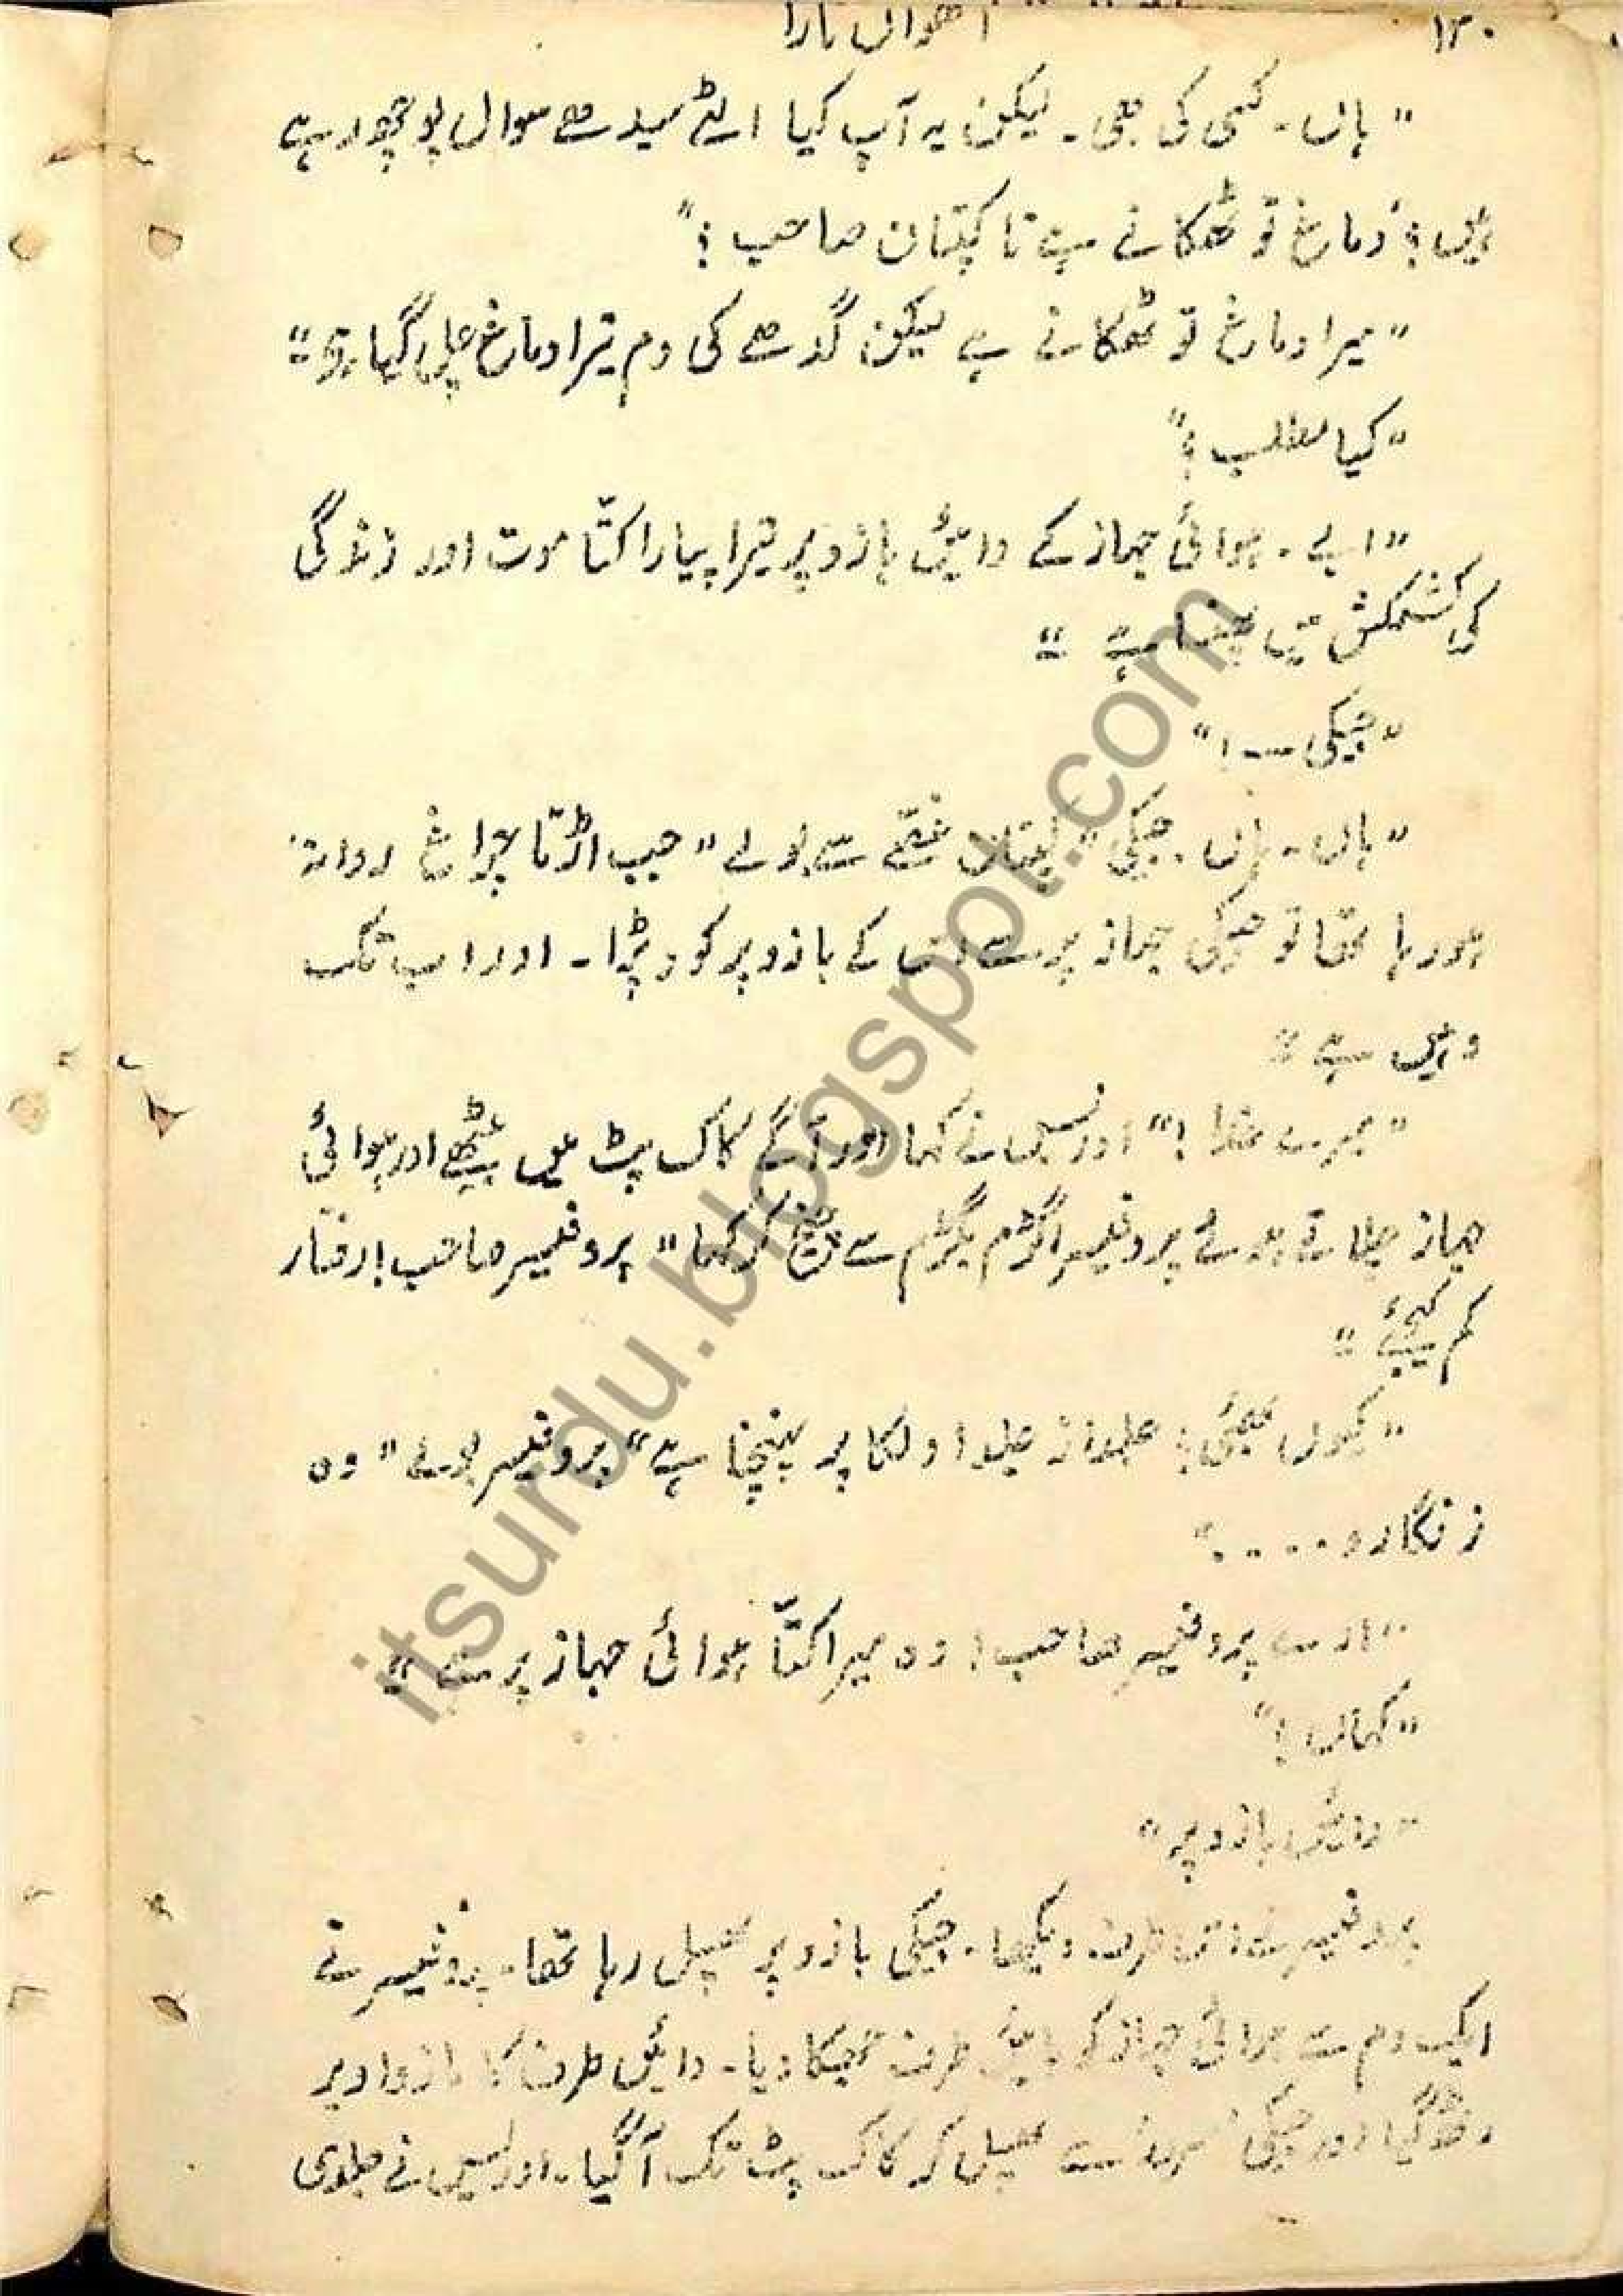 ۱۳۰
"ہاں۔ کسی کی بھی۔ لیکن یہ آپ کیا الٹے سیدھے سوال پوچھ رہے
ہیں؟ دماغ تو ٹھکانے ہے نا کپتان صاحب؟"
"میرا دماغ تو ٹھکانے ہے لیکن گدھے کی دم تیرا دماغ چل گیا ہے"
"کیا مطلب؟"
"ابے۔ ہوائی جہاز کے دائیں بازو پر تیرا پیارا کتّا موت اور زندگی
کی کشمکش میں پھنسا ہے"
"جیکی — !"
"ہاں۔ ہاں۔ جیکی" کپتان غصّے سے بولے "جب اڑتا چراغ روانہ
ہو رہا تھا تو جیکی جہاز پر سے اس کے بازو پر کود پڑا۔ اور اب تک
وہیں ہے"
"میرے خدا!" ادریس نے کہا اور آگے کاک پٹ میں بیٹھے اور ہوائی
جہاز چلاتے ہوئے پروفیسر اگڑم بگڑم سے چیخ کر کہا "پروفیسر صاحب! رفتار
کم کیجئے"
"کیوں بھئی؟ جلد از جلد اولکا پر پہنچنا ہے" پروفیسر بولے "وہ
زنگارو . . . . "
"ارے پروفیسر صاحب! وہ میرا کتّا ہوائی جہاز پر ہے"
"کہاں؟"
"دائیں بازو پر"
پروفیسر نے طرف دیکھا۔ جیکی بازو پر پھسل رہا تھا۔ پروفیسر نے
ایک دم سے ہوائی جہاز کو بائیں طرف جھکا دیا۔ دائیں طرف کا بازو اوپر
اٹھ گیا اور جیکی پھسل کر کاک پٹ تک آ گیا۔ ادریس نے جلدی
itsurdu.blogspot.com